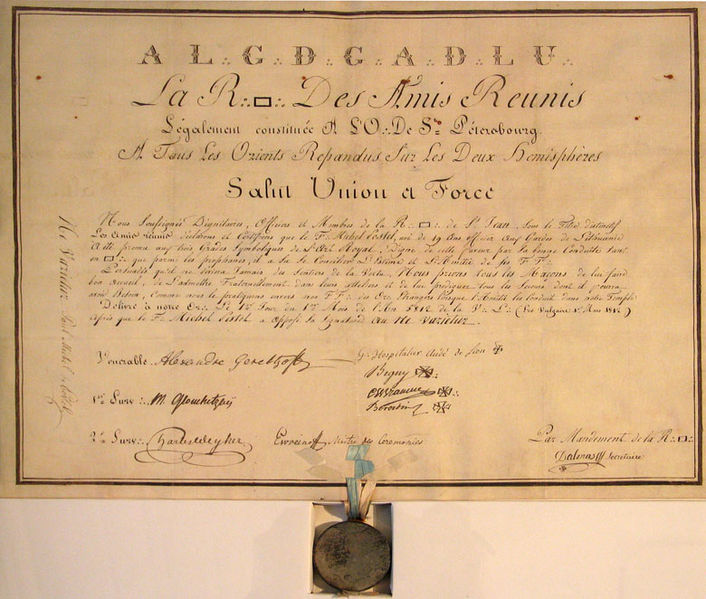 A L∴G∴D∴G∴A∴D∴L∴U∴
La R∴▭∴ Des Amis Reunis
Légalement constituée A L'O∴ De St Pétersbourg
A Tous Les Orients Repandus Sur Les Deux Hemisphères
Salut Union et Force
Nous Soussignés Dignitaires, Officiers et Membres de la R∴▭∴ de St Jean, Sous le Titre distinctif
Les Amis réunis déclarons et Certifions que le F∴ Michel Pestel, né de 19 Ans officier aux Gardes de Lithuanie
A été promu aux trois Grades Symboliques de l'Art Royal, Digne de cette faveur par Sa bonne Conduite tant
en ▭ que parmi les prophanes, et a Su Se Concilier l'Estime et l'Amitié de Ses FF∴
Persuadés qu'il ne Jamais des Sentiers de la Vertu, Nous prions tous les Maçons de lui faire
bon accueil, de l'admettre Fraternellement dans leurs atteliers et de lui prodiguer tous les Secours dont il pourra
avoir Besoin, comme nous le pratiquons envers nos FF∴ des Ors Etrangers lorsque l'Amitié les Conduit dans notre Temple
Délivré à notre Or∴ Le 1er Jour du 1er Mois de l'An 5812 de la V∴ L∴ (Ere Vulgaire 1er Mars 1812)
Après que le F∴ Michel Pestel a apposé Sa Signature au Ne Varietur.
Ne Varietur
Venerable∴ Alexandre
Gd Hospitalier André de Lion
Beguy
1er Surv∴ M.
2d Surv∴
Mètre des Ceremonies
Par Mandement de la R∴▭∴
Dalmas Secretaire